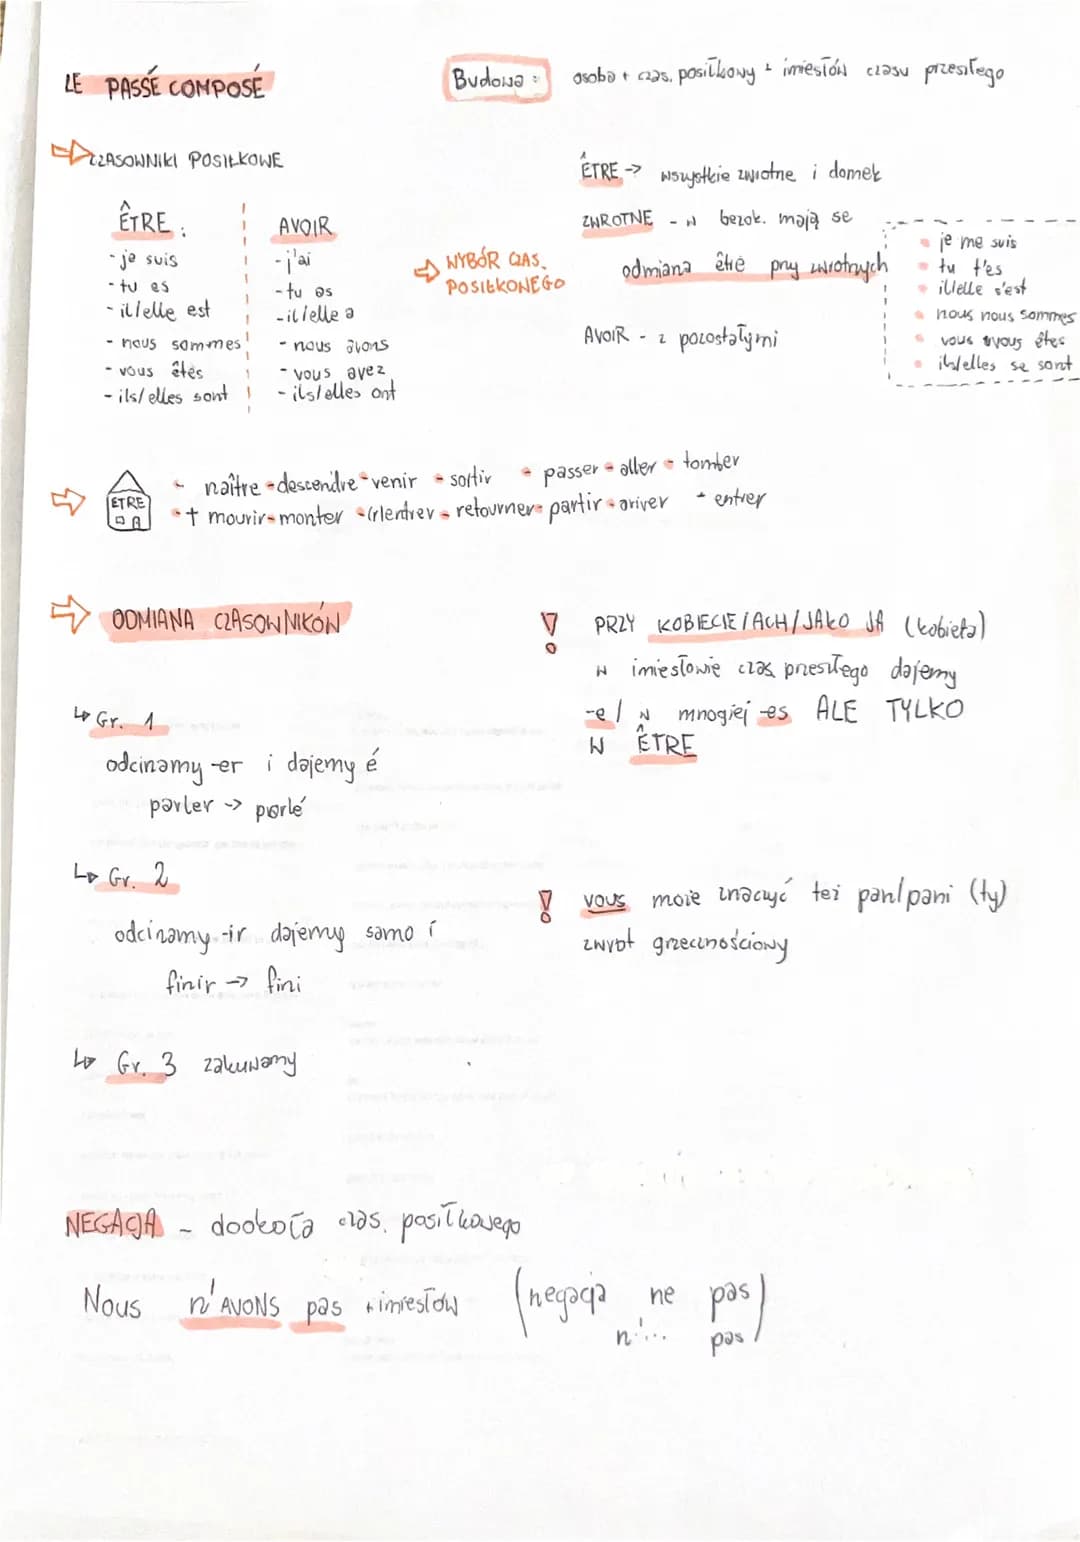 LE PASSÉ COMPOSÉ
Budowa: osoba + czas. posiłkowy + imiesłów czasu przeszłego
CZASOWNIKI POSIŁKOWE
ÊTRE:
- je suis
- tu es
- il/elle est
- nous sommes
- vous êtes
- ils/elles sont
AVOIR
- j'ai
- tu as
- il/elle a
- nous avons
- vous avez
- ils/elles ont
WYBÓR CZAS.
POSIŁKONEGO
ÊTRE -> wszystkie zwrotne i domek
ZWROTNE - w bezok. mają se
odmiana être przy zwrotnych
je me suis
tu t'es
il/elle s'est
nous nous sommes
vous vous êtes
ils/elles se sont
AVOIR - z pozostałymi
ETRE
- naître - descendre - venir - sortir - passer - aller - tomber
- † mourir - monter - (r)entrer - retourner - partir - ariver - entrer
ODMIANA CZASOWNIKÓW
Gr. 1
odcinamy -er i dajemy é
parler -> parlé
Gr. 2
odcinamy -ir dajemy samo i
finir -> fini
Gr. 3 zakuwamy
! PRZY KOBIECIE/ACH/JAKO JA (kobieta)
w imiesłowie czas. przeszłego dajemy
-e / w mnogiej -es ALE TYLKO
W ÊTRE
! vous może znaczyć też pan/pani (ty)
zwrot grzecznościowy
NEGACJA - dookoła czas. posiłkowego
Nous n'AVONS pas + imiesłów (negacja ne pas)
n'... pas